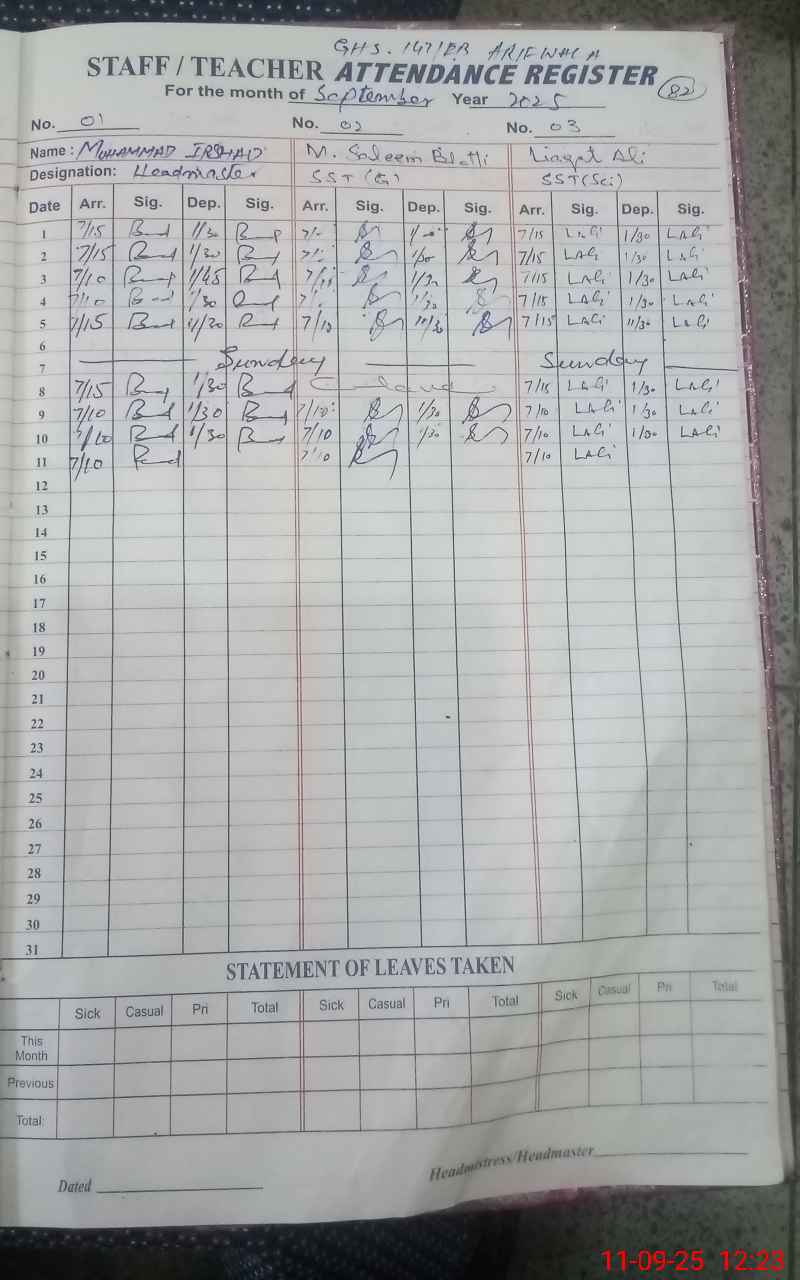 GHS. 147/EB ARIFWALA
STAFF / TEACHER ATTENDANCE REGISTER
For the month of September Year 2025 82
No. 01 No. 02 No. 03
Name : MUHAMMAD IRSHAD M. Saleem Bhatti Liaqat Ali
Designation: Headmaster SST(G) SST(Sci)
Date Arr. Sig. Dep. Sig. Arr. Sig. Dep. Sig. Arr. Sig. Dep. Sig.
1 7/15 1/30 7/15 LAGi 1/30 LAGi
2 7/15 1/30 7/15 LAGi 1/30 LAGi
3 7/10 1/45 7/15 LAGi 1/30 LAGi
4 7/10 1/30 1/30 7/15 LAGi 1/30 LAGi
5 7/15 11/30 7/10 11/30 7/15 LAGi 11/30 LAGi
6
7 Sunday Sunday
8 7/15 1/30 7/15 LAGi 1/30 LAGi
9 7/10 1/30 7/10 1/30 7/10 LAGi 1/30 LAGi
10 7/10 1/30 7/10 1/30 7/10 LAGi 1/30 LAGi
11 7/10 7/10 7/10 LAGi
12
13
14
15
16
17
18
19
20
21
22
23
24
25
26
27
28
29
30
31
STATEMENT OF LEAVES TAKEN
Sick Casual Pri Total Sick Casual Pri Total Sick Casual Pri Total
This
Month
Previous
Total:
Dated Headmistress/Headmaster
11-09-25 12:23